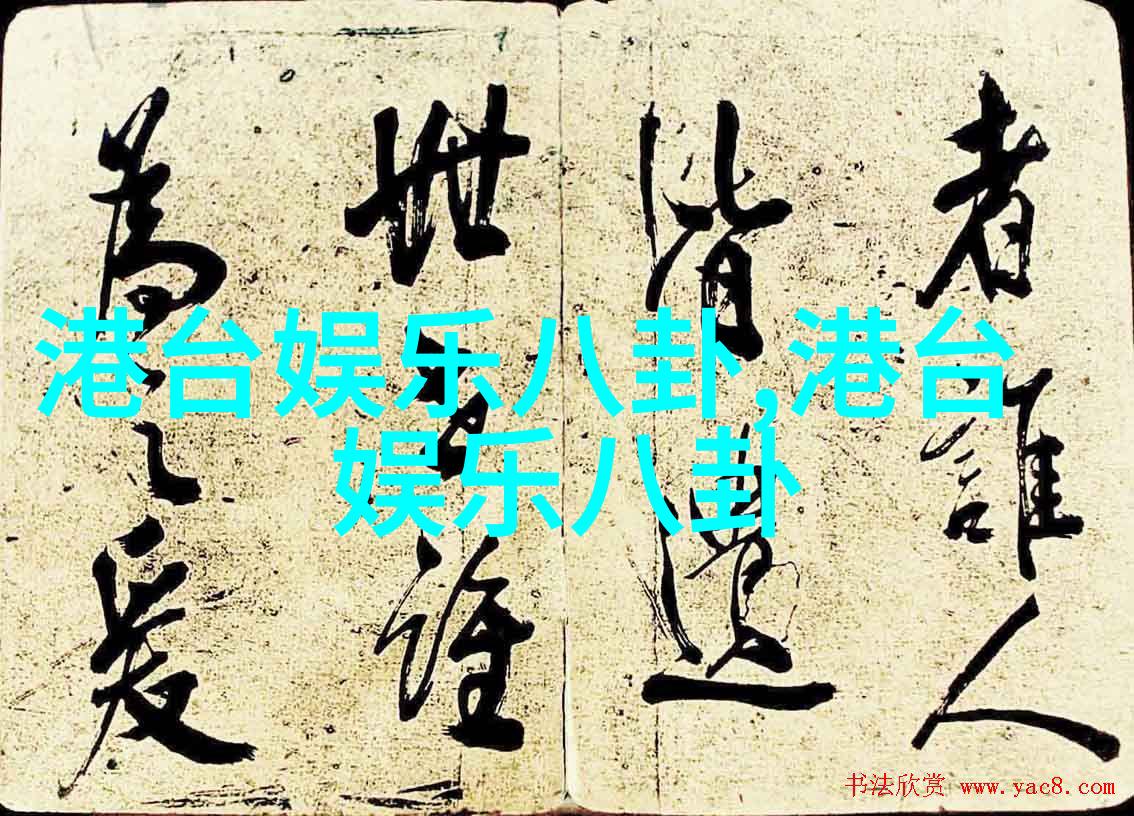 者誰人
皆
世誰
為之
港台娱乐八卦,港台
娱乐八卦
书法欣赏 www.yac8.com